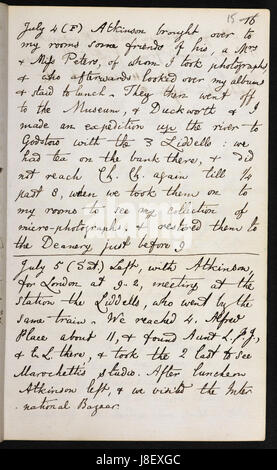 15 16
July 4 (F) Atkinson brought over to
my rooms some friends of his, a Mrs
& Miss Peters, of whom I took photographs,
& who afterwards looked over my albums
& staid to lunch. They then went off
to the Museum, & Duckworth & I
made an expedition up the river to
Godstow with the 3 Liddells: we
had tea on the bank there, & did
not reach Ch. Ch. again till ¼
past 8, when we took them on to
my rooms to see my collection of
micro-photographs, & restored them to
the Deanery, just before 9
July 5 (Sat) Left, with Atkinson,
for London at 9-2, meeting at the
station the Liddells, who went by the
same train. We reached 4. Alfred
Place about 11, & found Aunt L. P.J.
& E.L. there, & took the 2 last to see
Marochetti's studio. After luncheon
Atkinson left, & we visited the Inter-
national Bazaar.
alamy
J8EXGC